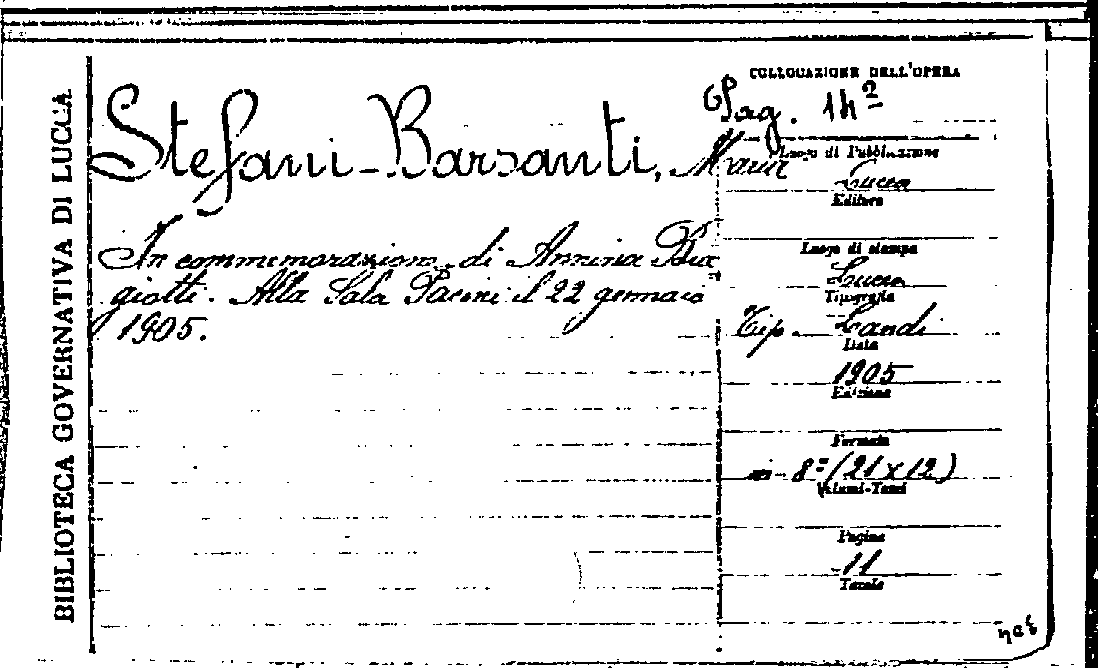 BIBLIOTECA GOVERNATIVA DI LUCCA
Stefani-Barsanti, Maria
In commemorazione di Annina Bia
giotti. Alla Sala Pacini il 22 gennaio
1905.
COLLOCAZIONE DELL'OPERA
14²
Luogo di Pubblicazione
Lucca
Editore
Luogo di stampa
Lucca
Tipografia
Tip. Landi
Data
1905
Edizione
Formato
in-8°(21x12)
Volumi-Tomi
Pagine
11
Tavole